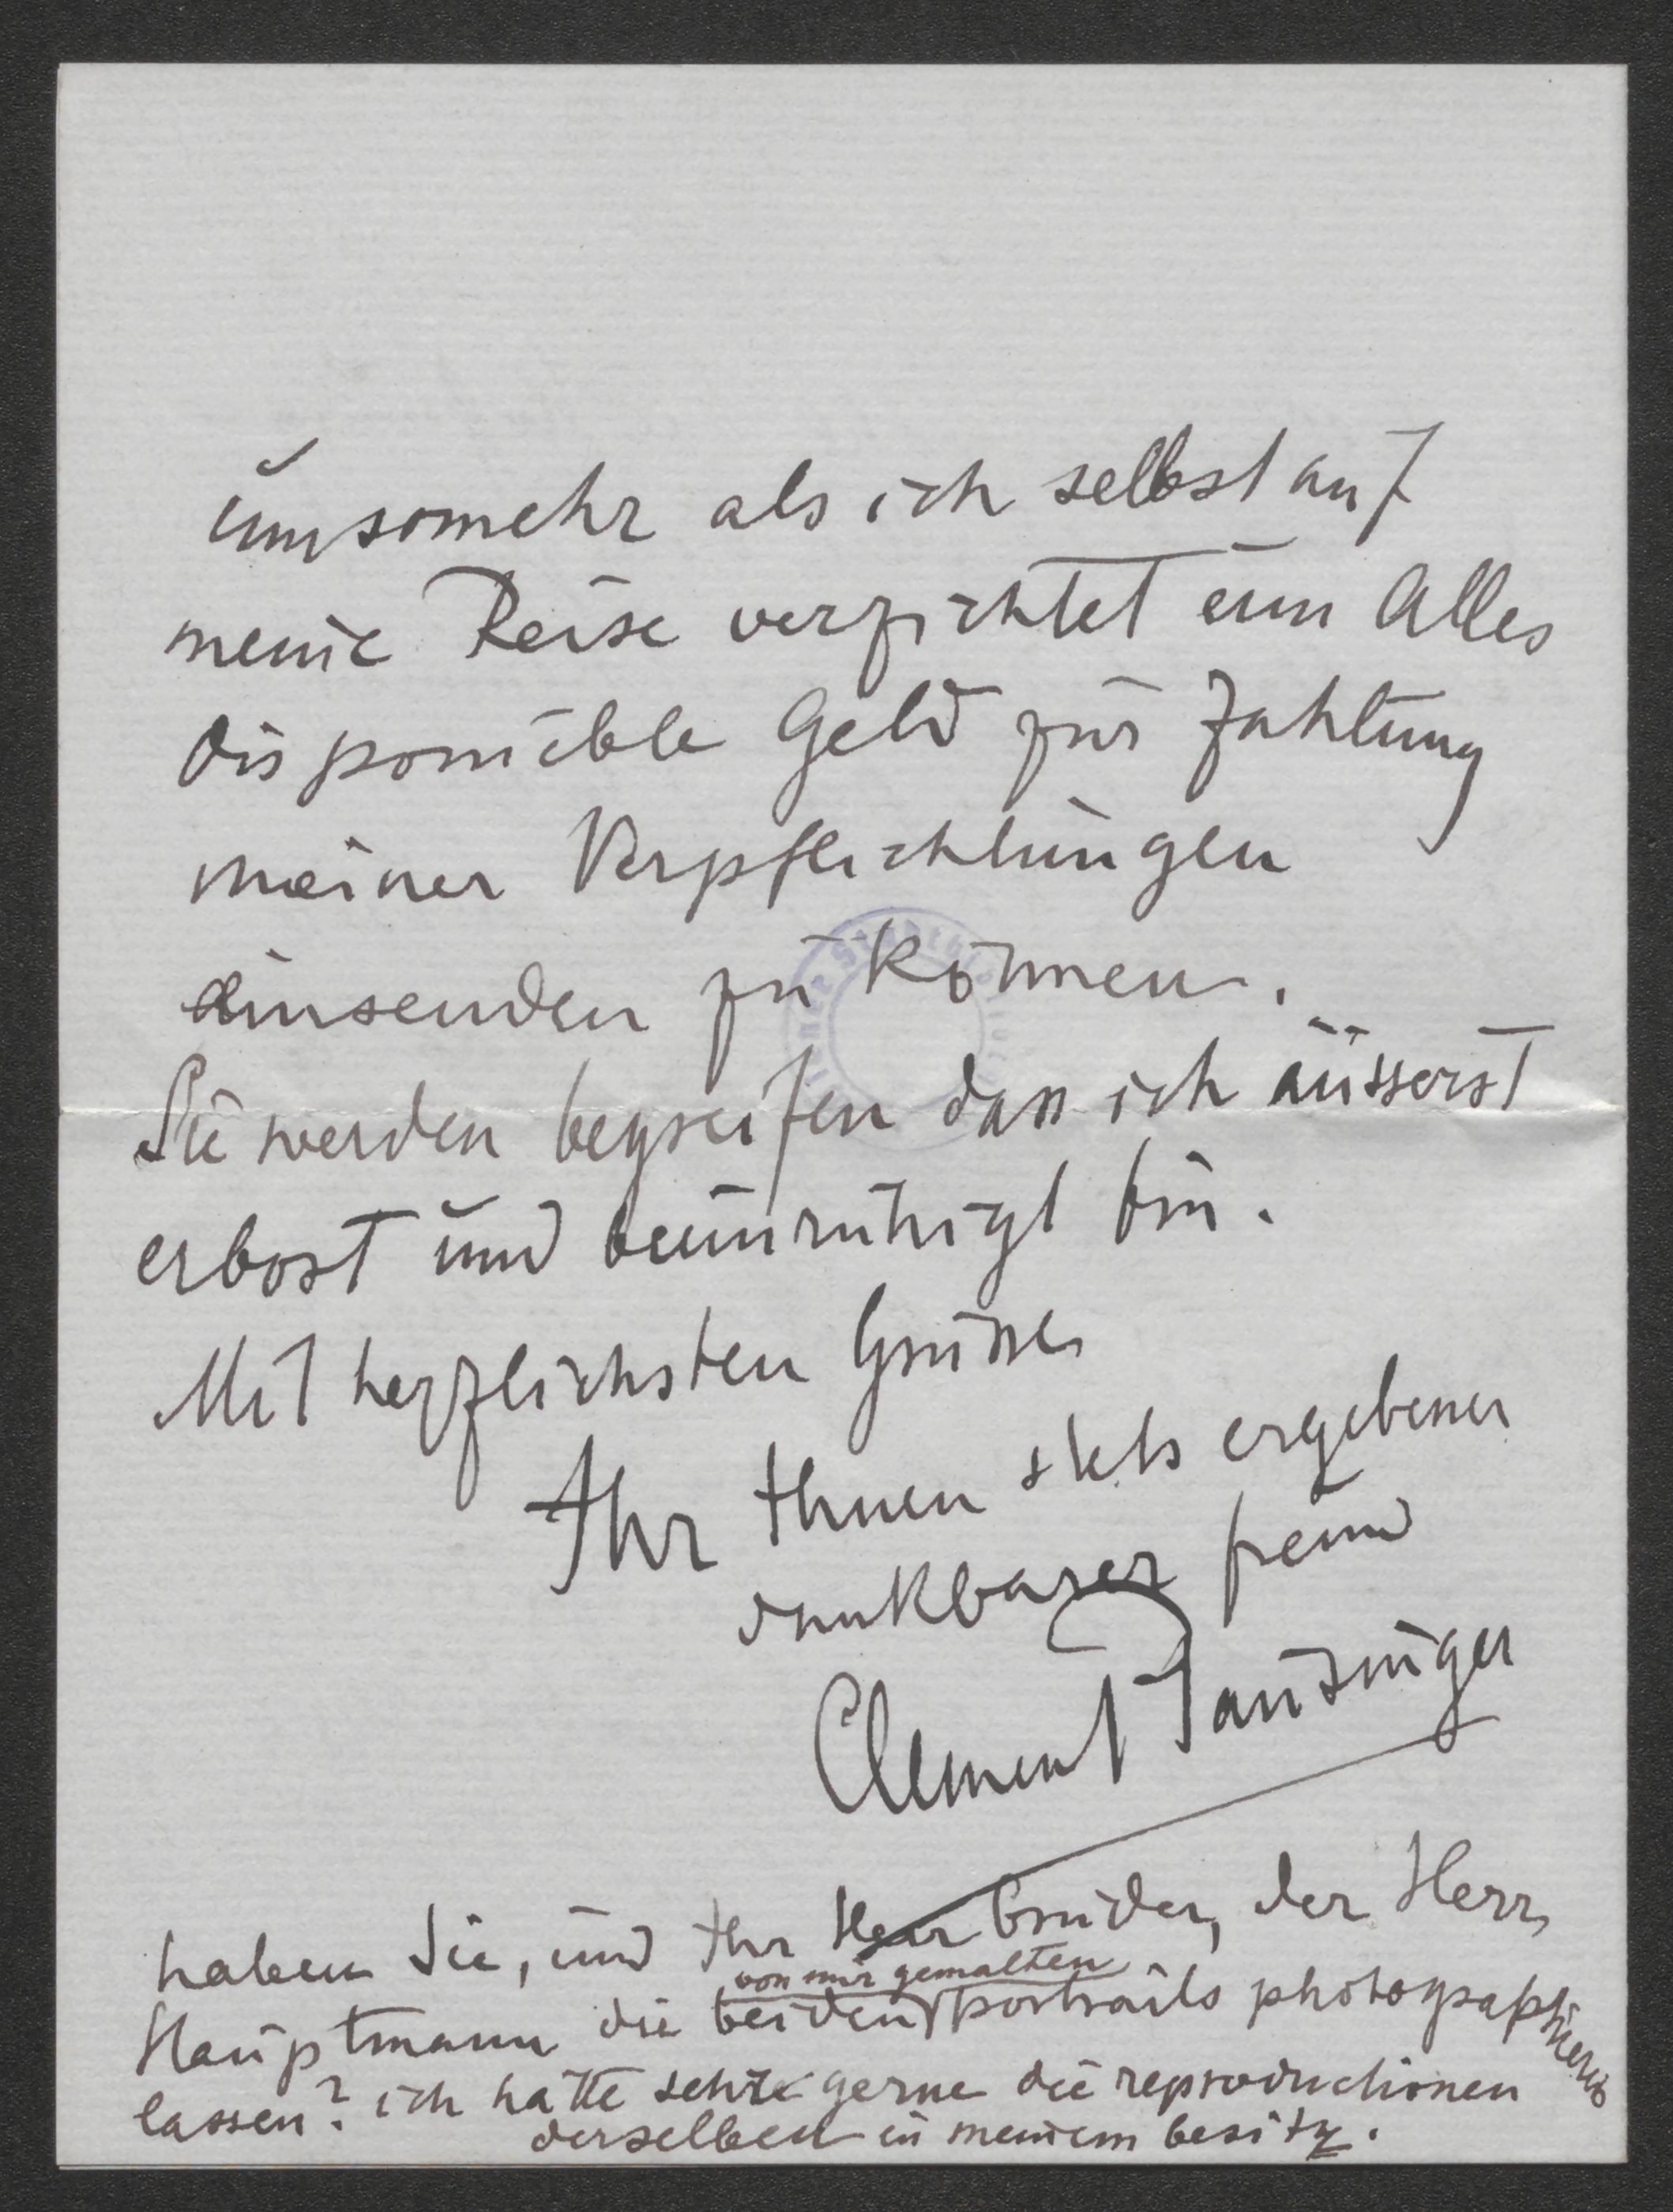 umsomehr als ich selbst auf
meine Reise verzichtet um Alles
disponible Geld zur Zahlung
meiner Verpflichtungen
einsenden zu können.
Sie werden begreifen dass ich äusserst
erbost und beunruhigt bin.
Mit herzlichsten Grüssen
Ihr Ihnen stets ergebener
dankbarer freund
Clement
haben Sie, und Ihr Herr bruder, der Herr
von mir gemalten
Hauptmann die beiden portraits photographieren
lassen? ich hätte sehr gerne die reproductionen
derselben in meinem besitz.